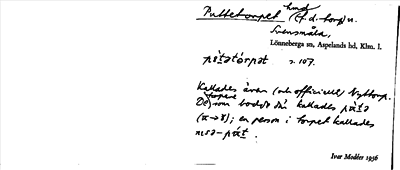 Puttetorpet hmd (f.d. torp) u.
Svensmåla,
Lönneberga sn, Aspelands hd, Klm. l.
s. 107.
Kallades även (och officiellt) Nyttorp.
De torpare som bodde där kallades
; en person i torpet kallades
Ivar Modéer 1936